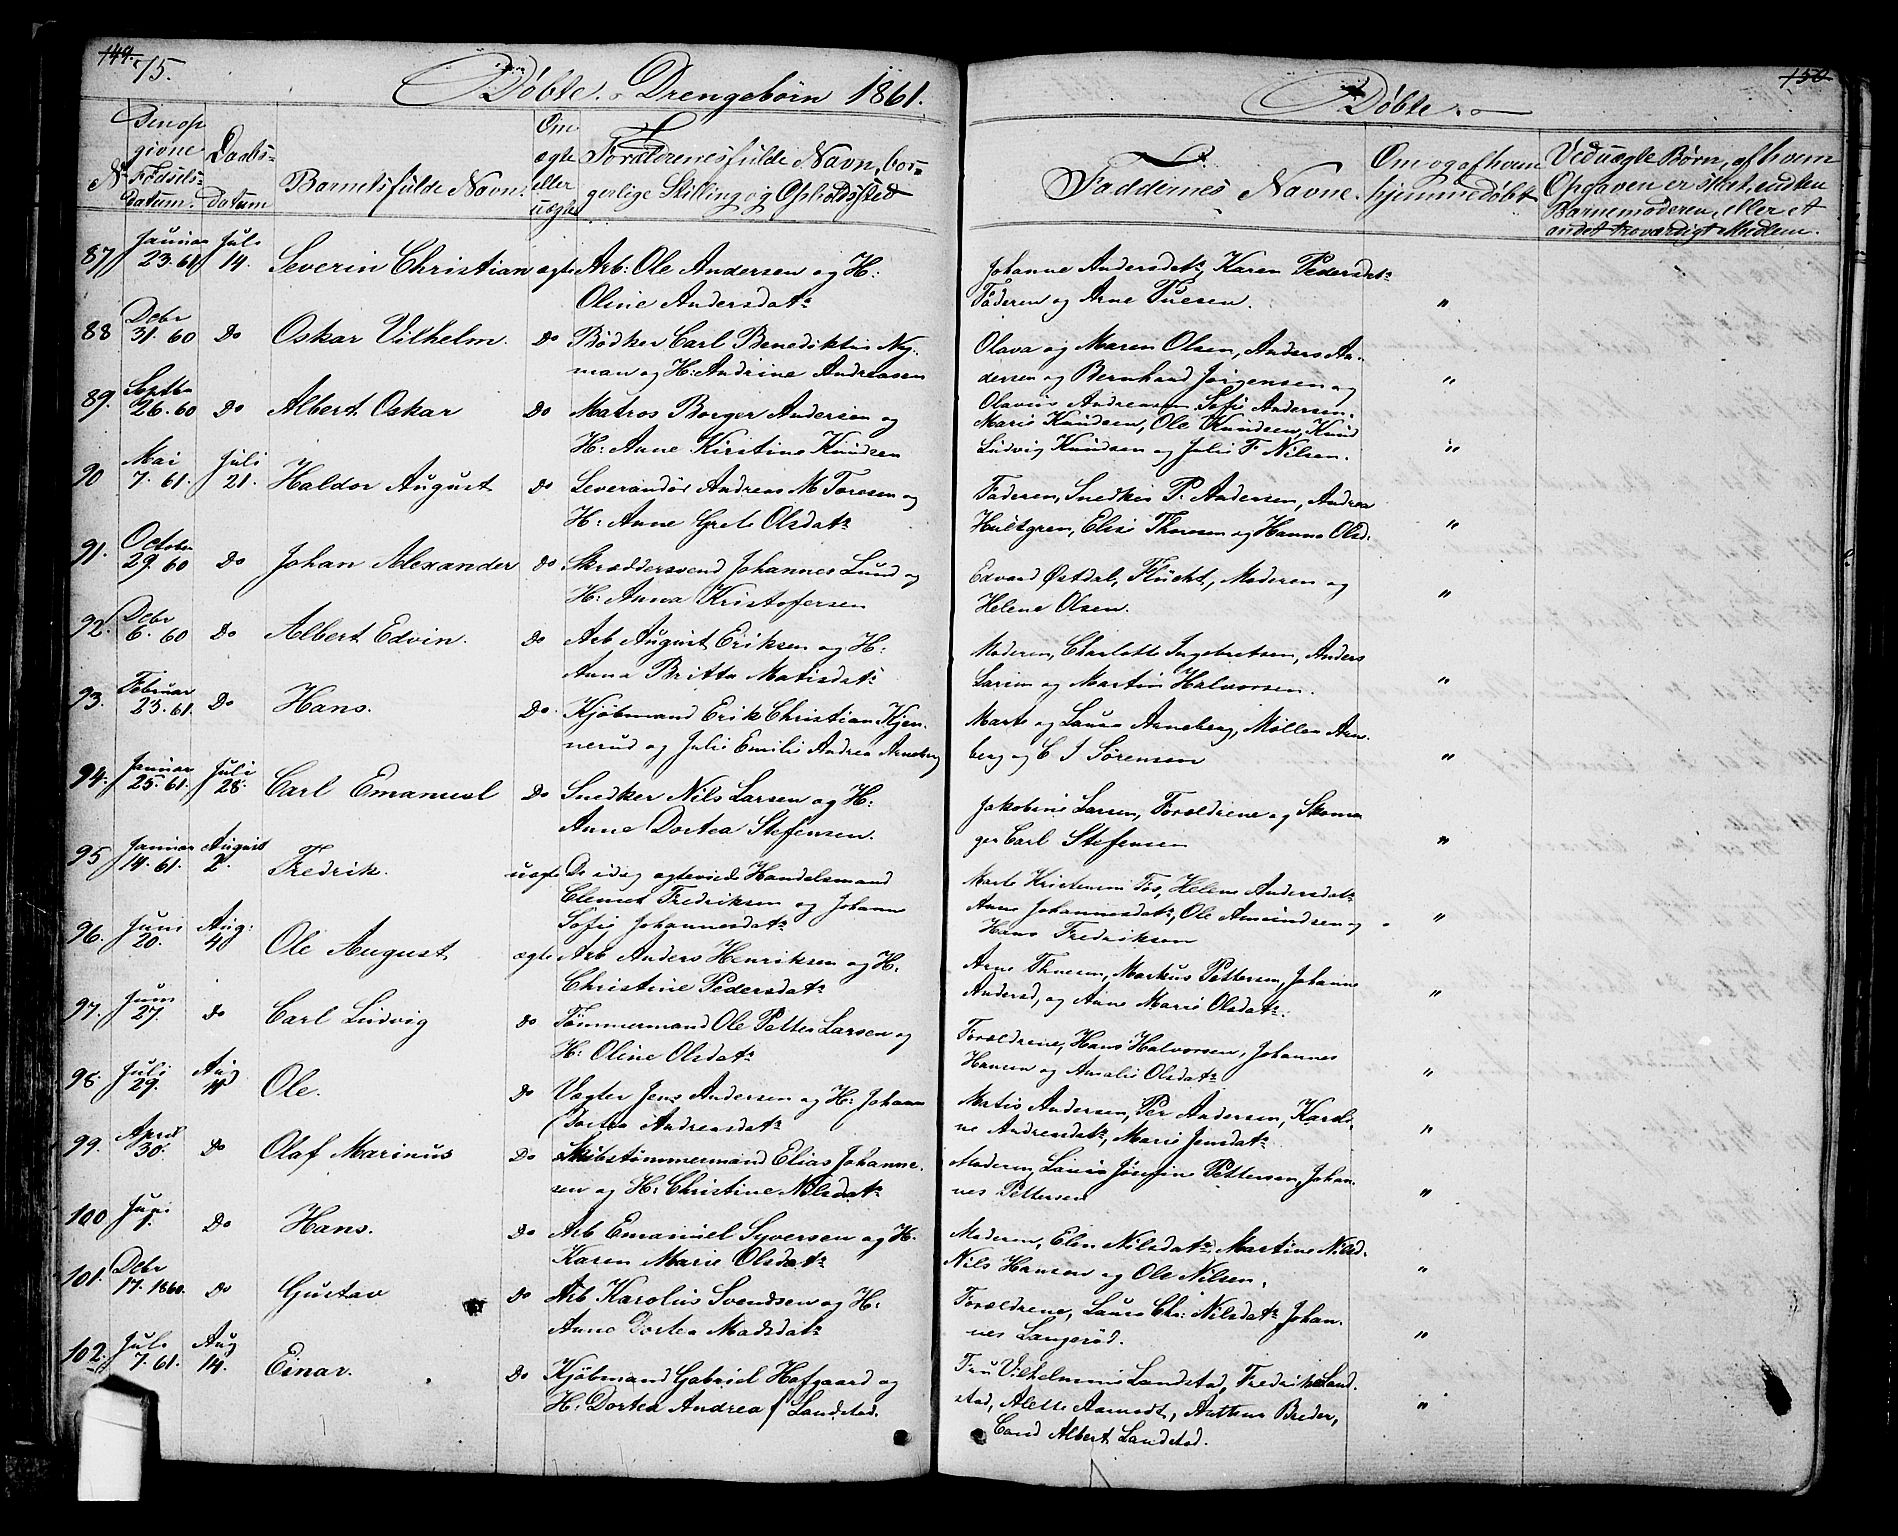 149. 75.
Døbte. Drengebørn 1861.
N. Den opgivne Fødsels-Datum. Daabs-Datum Barnets fulde Navn. Om ægte eller uægte Forældrenes fulde Navn, borgerlige Stilling og Opholdssted
87 Januar 23. 61 Juli 14. Severin Christian ægte Arb: Ole Andersen og H:
Oline Andersdatr
88 Decbr 31. 60 Do Oskar Vilhelm. Do Bødker Carl Benediktus Ny-
man og H: Andrine Andreasen
89. Septbr 26. 60 Do Albert Oskar Do Matros Borger Andersen og
H: Anne Kirstine Knudsen
90 Mai 7. 61. Juli 21. Haldor August Do Leverandør Andreas M Toresen og
H: Anne Grete Olsdatr
91. October 29. 60 Do Johan Alexander Do Skræddersvend Johannes Lund og
H: Anna Kristofersen
92. Decbr 6. 60 Do Albert Edvin. Do Arb August Eriksen og H:
Anna Britta Matisdatr
93. Februar 23. 61. Do Hans. Do. Kjøbmand Erik Christian Kjen-
nerud og Julie Emilie Andrea Arneberg
94. Januar 25. 61. Juli 28. Carl Emanuel Do Snedker Nils Larsen og H:
Anne Dortea Stefensen.
95 Januar 14. 61. August 2. Fredrik. uægte De idag ægteviede Handelsmand
Clemet Fredriksen og Johann
Sofie Johannesdatr
96. Juni 20. Aug: 4 Ole August ægte Arb Anders Henriksen og H.
Christine Pedersdatr
97. Juni 27. do Carl Ludvig do Tømmermand Ole Petter Larsen og
H: Oline Olsdatr
98. Juli 29. Aug 11 Ole. Do Vægter Jens Andersen og H: Johann
Dortea Andreasdatr
99. April 30. Do Olaf Marinus Do Skibstømmermand Elias Johanne-
sen og H: Christine Nilsdatr
100 Juni 1. Do Hans. Do Arb Emanuel Syversen og H.
Karen Marie Olsdatr
101. Decbr 17. 1860. Do Gustav Do Arb Karolus Svendsen og H:
Anne Dortea Madsdatr
102. Juli 7. 61. Aug 14. Einar. Do Kjøbmand Gabriel Hofgaard og
H: Dortea Andrea f Landstad.
150
Døbte.
Faddernes Navne. Om og af hvem hjemmedøbt Ved uægte Børn, af hvem Opgaven er skeet, enten Barnemoderen, eller et andet troværdigt Medlem.
Johanne Andersdatr, Karen Pedersdatr
Faderen og Arne Tuesen. "
Olava og Maren Olsen, Anders An-
dersen og Bernhard Jørgensen og "
Olavus Andreasen Sofi Andersen.
Marie Knudsen, Ole Knudsen, Knud
Ludvig Knudsen og Julie F. Nilsen. "
Faderen, Snedker P. Andersen, Andrea
Hultgren, Elise Thoresen og Hanna Olsd: "
Edvard Østdal, Flucht, Moderen og
Helene Olsen. "
Moderen, Charlotte Ingebretsen, Anders
Larsen og Martin Halvorsen. "
Marte og Laura Arneberg, Møller Arne-
berg og C I Sørensen "
Jakobine Larsen, Forældrene og Skoma
ger Carl Stefensen "
Marte Kristensen Fos, Helene Andersdatr
Anne Johannesdatr, Ole Amundsen og "
Hans Fredriksen
Arne Thuesen, Markus Pettersen, Johanne
Andersd, og Anne Marie Olsdatr. "
Forældrene, Hans Halvorsen, Johannes
Hansen og Amalie Olsdatr "
Matis Andersen, Per Andersen, Karoli-
ne Andreasdatr, Marie Jensdatr "
Moderen, Lauis Josefine Pettersen, Johan-
nes Pettersen "
Moderen, Elen Nilsdatr, Martine Nilsd.
Nils Hansen og Ole Nilsen. "
Forældrene, Laura Chr: Nilsdatr Johan-
nes Langerød. "
Fru Vilhelmine Landstad, Fredrikke Land-
stad, Alette Aamodt, Breder, "
Cand Albert Landstad.